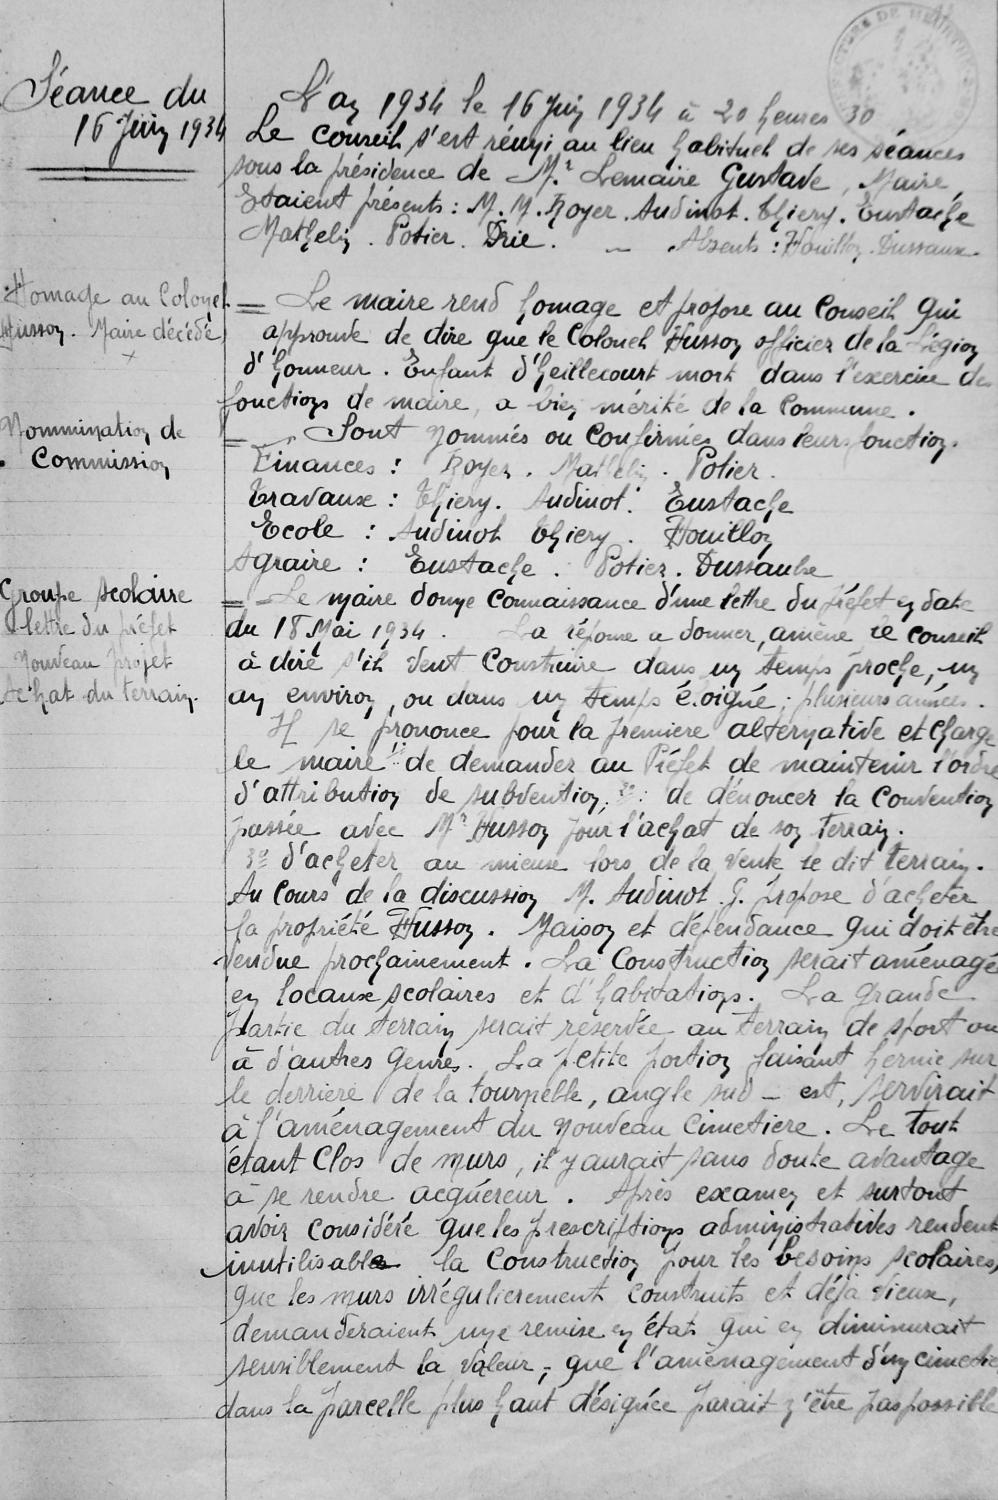 Séance du
16 Juin 1934
L'an 1934 le 16 Juin 1934 à 20 heures 30
Le Conseil s'est réuni au lieu habituel de ses séances
sous la présidence de Mr Lemaire Gustave, Maire,
Etaient présents : M.M. Royer. Audinot. Thiery. Eustache
Mathelin. Potier. Drie. — Absents : Houillon. Dussaux.
Homage au Colonel
Husson. Maire décédé
= Le maire rend homage et propose au Conseil qui
approuve de dire que le Colonel Husson officier de la Légion
d'honneur. Enfant d'Heillecourt mort dans l'exercice des
fonctions de maire, a bien mérité de la Commune.
Nommination de
Commission
= Sont nommés ou confirmés dans leurs fonction.
Finances : Royer. Mathelin. Potier.
Travaux : Thiery. Audinot. Eustache
Ecole : Audinot Thiery. Houillon
Agraire : Eustache. Potier. Dussaulx
Groupe scolaire
lettre du préfet
nouveau projet
Achat du terrain.
= Le maire donne connaissance d'une lettre du préfet en date
du 18 Mai 1934. La réponse a donner, amène le conseil
à dire s'il veut construire dans un temps proche, un
an environ, ou dans un temps éloigné ; plusieurs années.
Il se prononce pour la premiere alternative et charge
le maire 1° de demander au Préfet de maintenir l'ordre
d'attribution de subvention. 2° : de dénoncer la Convention
passée avec Mr Husson pour l'achat de son terrain.
3° d'acheter au mieux lors de la vente le dit terrain.
Au cours de la discussion M. Audinot G. propose d'acheter
la propriété Husson. Maison et dépendance qui doit être
vendue prochainement. La Construction serait aménagé
en locaux scolaires et d'habitations. La grande
partie du terrain serait réservée au terrain de sport ou
à d'autres genres. La petite portion faisant hernie sur
le derrière de la tournelle, angle sud - est, servirait
à l'aménagement du nouveau cimetiere. Le tout
étant clos de murs, il y aurait sans doute avantage
à se rendre acquéreur. Après examen et surtout
avoir considéré que les prescriptions administratives rendent
inutilisable la Construction pour les besoins scolaires,
que les murs irrégulierement construits et déjà vieux,
demanderaient une remise en état qui en diminurait
sensiblement la valeur, ; que l'aménagement d'un cimetie
dans la parcelle plus haut désignée parait n'être pas possible